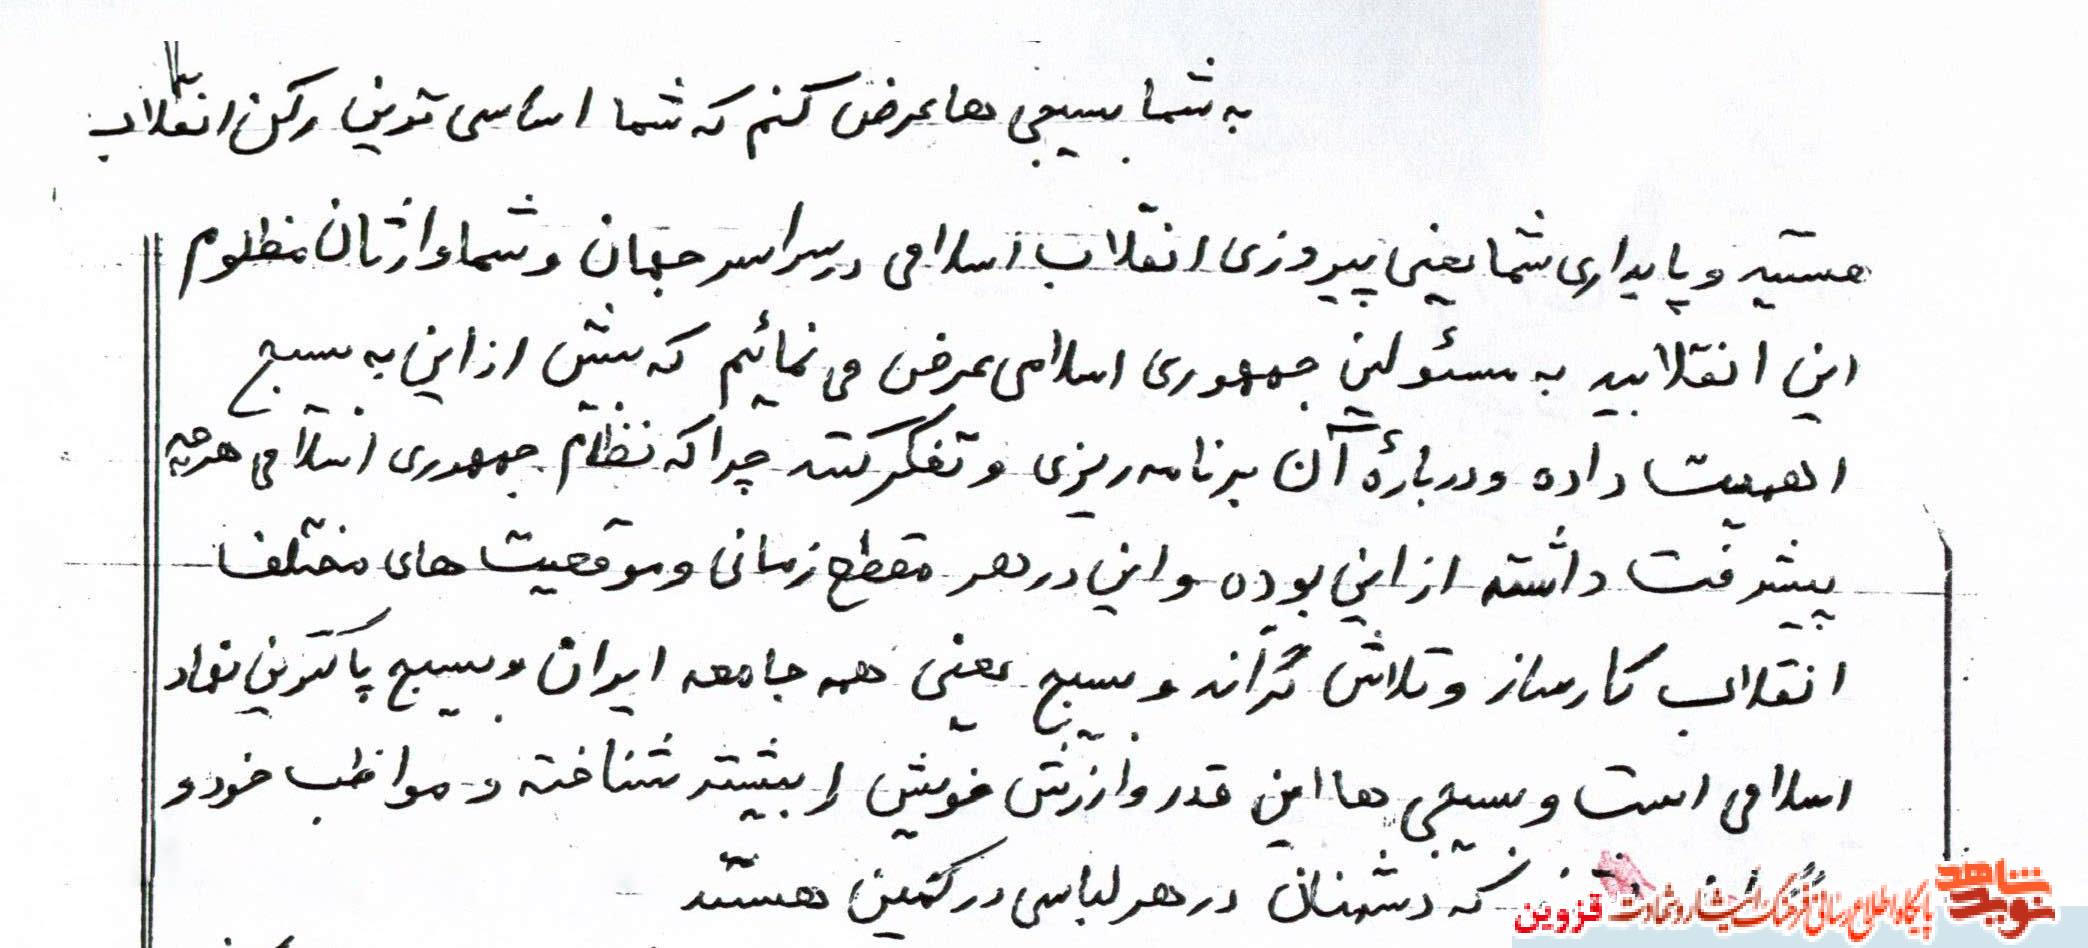 به شما بسیجی ها عرض کنم که شما اساسی ترین رکن انقلاب
هستید و پایداری شما یعنی پیروزی انقلاب اسلامی در سراسر جهان و شما وارثان مظلوم
این انقلابید به مسئولین جمهوری اسلامی عرض می نمائیم که بیش از این به بسیج
اهمیت داده و دربارۀ آن برنامه ریزی و تفکر کنند چرا که نظام جمهوری اسلامی هر چه
پیشرفت داشته از این بوده و این در هر مقطع زمانی و موقعیت های مختلف
انقلاب کارساز و تلاش گراند و بسیج یعنی همه جامعه ایران و بسیج پاکترین نهاد
اسلامی است و بسیجی ها این قدر و ارزش خویش را بیشتر شناخته و مواظب خود و
که دشمنان در هر لباسی در کمین هستند
نوید شاهد
پایگاه اطلاع رسانی فرهنگ ایثار و شهادت قزوین